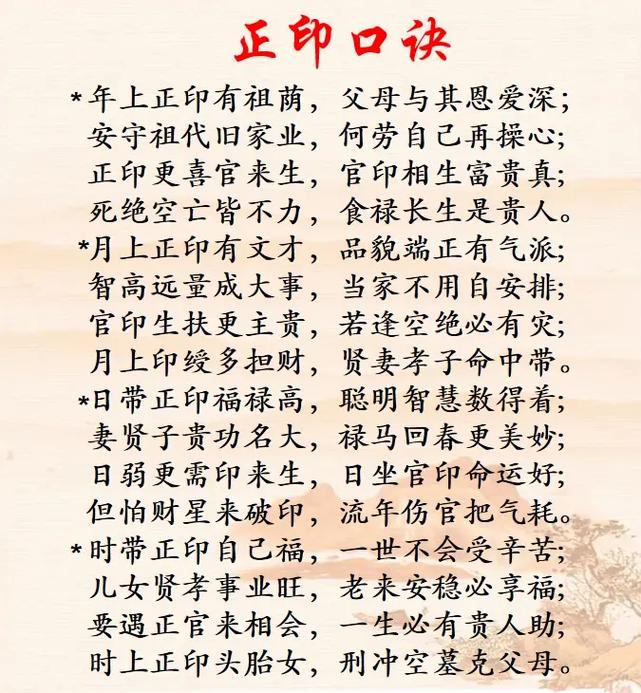 正印口诀
*年上正印有祖荫，父母与其恩爱深；
安守祖代旧家业，何劳自己再操心；
正印更喜官来生，官印相生富贵真；
死绝空亡皆不力，食禄长生是贵人。
*月上正印有文才，品貌端正有气派；
智高远量成大事，当家不用自安排；
官印生扶更主贵，若逢空绝必有灾；
月上印绶多担财，贤妻孝子命中带。
*日带正印福禄高，聪明智慧数得着；
妻贤子贵功名大，禄马回春更美妙；
日弱更需印来生，日坐官印命运好；
但怕财星来破印，流年伤官把气耗。
*时带正印自己福，一世不会受辛苦；
儿女贤孝事业旺，老来安稳必享福；
要遇正官来相会，一生必有贵人助；
时上正印头胎女，刑冲空墓克父母。